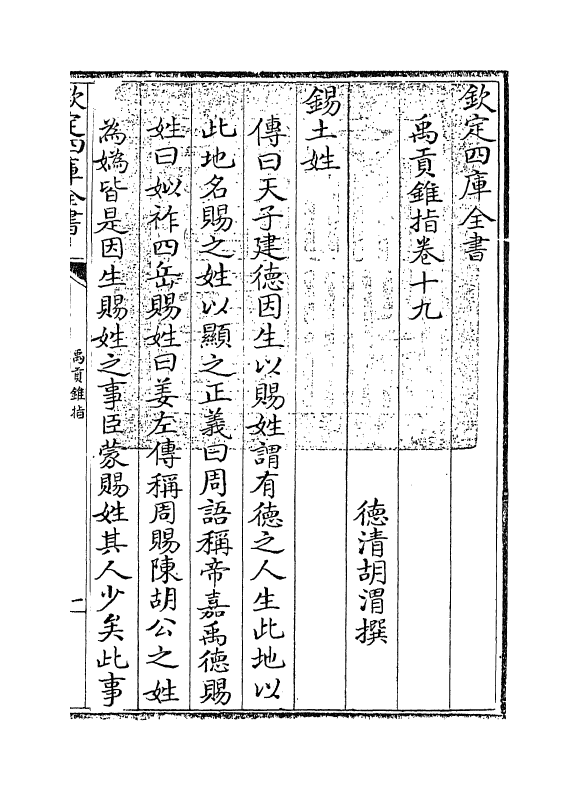 欽定四庫全書
禹貢錐指卷十九
德清胡渭撰
錫土姓
傳曰天子建德因生以賜姓謂有德之人生此地以
此地名賜之姓以顯之正義曰周語稱帝嘉禹德賜
姓曰姒祚四岳賜姓曰姜左傳稱周賜陳胡公之姓
為媯皆是因生賜姓之事臣蒙賜姓其人少矣此事
欽定四庫全書
禹貢錐指